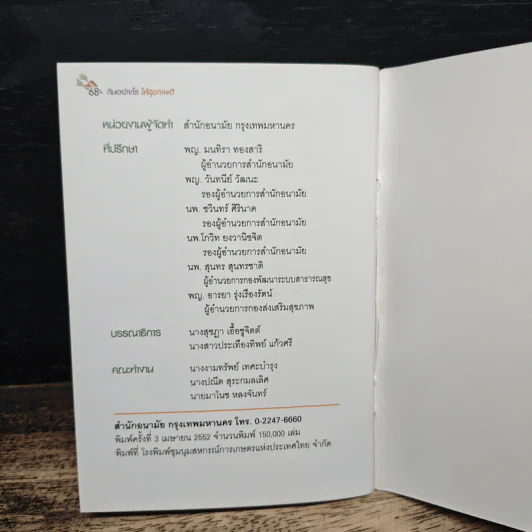 68 กินอย่างไร ให้สุขภาพดี
หน่วยงานผู้จัดทำ สำนักอนามัย กรุงเทพมหานคร
ที่ปรึกษา พญ. มนทิรา ทองสาริ
ผู้อำนวยการสำนักอนามัย
พญ. วันทนีย์ วัฒนะ
รองผู้อำนวยการสำนักอนามัย
นพ. ชวินทร์ ศิรินาค
รองผู้อำนวยการสำนักอนามัย
นพ.โกวิท ยงวานิชจิต
รองผู้อำนวยการสำนักอนามัย
นพ. สุนทร สุนทรชาติ
ผู้อำนวยการกองพัฒนาระบบสาธารณสุข
พญ. อารยา รุ่งเรืองรัตน์
ผู้อำนวยการกองส่งเสริมสุขภาพ
บรรณาธิการ นางสุชฎา เอื้อชูจิตต์
นางสาวประเทืองทิพย์ แก้วศรี
คณะทำงาน นางงามทรัพย์ เทศะบำรุง
นางปณีต สุระกมลเลิศ
นายมาโนช หลงจันทร์
สำนักอนามัย กรุงเทพมหานคร โทร. 0-2247-6660
พิมพ์ครั้งที่ 3 เมษายน 2552 จำนวนพิมพ์ 150,000 เล่ม
พิมพ์ที่ โรงพิมพ์ชุมนุมสหกรณ์การเกษตรแห่งประเทศไทย จำกัด